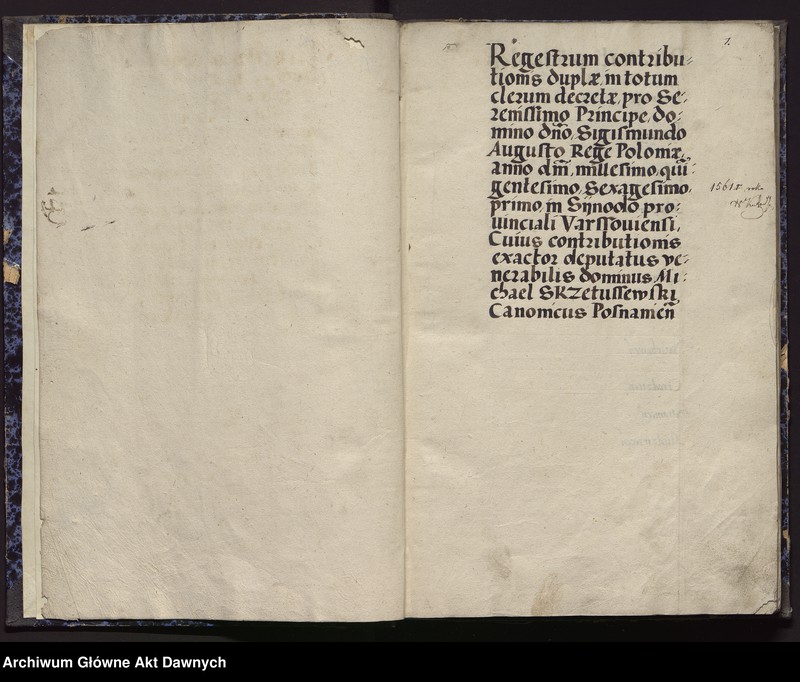 1.
Regestrum contribu-
tionis duplæ, in totum
clerum decretæ, pro Se-
renissimo Principe, do-
mino dño, Sigismundo
Augusto Rege Poloniæ,
anño dm̃, millesimo, qui
gentesimo, Sexagesimo,
primo, in Sÿnodo pro-
uinciali Varssouiensi,
Cuius contributionis
exactor deputatus ve-
nerabilis dominus Mi-
chael SKZetussewski,
Canonicus Posnamen̄
1561. roku
Archiwum Główne Akt Dawnych